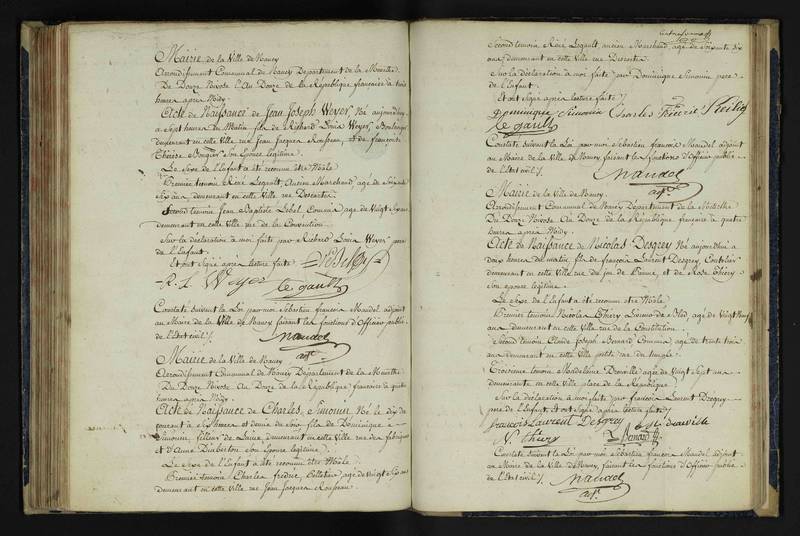 Mairie de la Ville de Nancy
Arrondissement Communal de Nancy Département de la Meurthe
Du Douze Nivose L'An Douze de la République française à trois
heures après Midy
Acte de Naissance de Jean Joseph Weyer, Né aujourd'huy
à Sept heures du Matin fils de Richard Louis Weyer, Boulanger
demeurant en cette Ville rue Jean Jacques Rousseau, et de françoise
Thérèse son Epouse légitime.
Le Sexe de l'Enfant a été reconnu être Mâle
Premier temoin René Legault, Ancien Marchand agé de Soixante
dix ans, demeurant en cette Ville rue Descartes
Second temoin Jean Baptiste Lebel Commis agé de Vingt Sept ans
demeurant en cette Ville rue de la Convention
Sur la déclaration à moi faite par Richard Louis Weyer pere
de l'Enfant
Et ont Signé après lecture faite
R. L. Weyer le gault
Constaté suivant la Loi par moi Sebastien françois Mandel adjoint
au Maire de la Ville de Nancy faisant les fonctions d'Officier public
de l'Etat civil
Mandel
adjt.
Mairie de la Ville de Nancy
Arrondissement Communal de Nancy Département de la Meurthe
Du Douze Nivose An Douze de la République française à quatre
heures après Midy
Acte de Naissance de Charles Simonin Né le dix du
courant à Six heures et demie du Soir fils de Dominique
Simonin, fileur de Laine, demeurant en cette Ville rue des fabriques
et d'Anne son Epouse légitime
Le Sexe de l'Enfant a été reconnu être Mâle
Premier temoin Charles fréderic agé de Vingt Six ans
demeurant en cette Ville rue Jean Jacques Rousseau
Second temoin René Legault, ancien Marchand, agé de Soixante dix
ans demeurant en cette Ville rue Descartes
Sur la déclaration à moi faite par Dominique Simonin pere
de l'Enfant
Et ont Signé après lecture faite
Dominique Simonin Charles
le gault
Constaté suivant la Loi par moi Sebastien françois Mandel adjoint
au Maire de la Ville de Nancy, faisant les fonctions d'Officier public
de l'Etat civil
Mandel
adjt.
Mairie de la Ville de Nancy
Arrondissement Communal de Nancy Département de la Meurthe
Du Douze Nivose An Douze de la République française à quatre
heures après Midy
Acte de Naissance de Nicolas Desgrey Né aujourd'hui à
trois heures du matin, fils de françois Laurent Desgrey, Coutelier
demeurant en cette Ville rue du jeu de Paume, et de Rose Thiery
Son épouse légitime
Le Sexe de l'Enfant a été reconnu être Mâle
Premier temoin Nicolas Thiery de Bled, agé de Vingt
ans demeurant en cette Ville rue de la Constitution
Second temoin Claude Joseph Bernard Commis agé de trente trois
ans demeurant en cette Ville petite rue du temple
Troisieme temoin Madeleine agée de Vingt Sept ans
demeurante en cette Ville place de la République
Sur la déclaration à moi faite par françois Laurent Desgrey
pere de l'Enfant, et ont Signé après lecture faite
francois Laurent Desgrey
N. thiery Bernard
Constaté suivant la Loi par moi Sebastien francois Mandel adjoint
au Maire de la Ville de Nancy, faisant les fonctions d'Officier public
de l'Etat civil
Mandel
adjt.